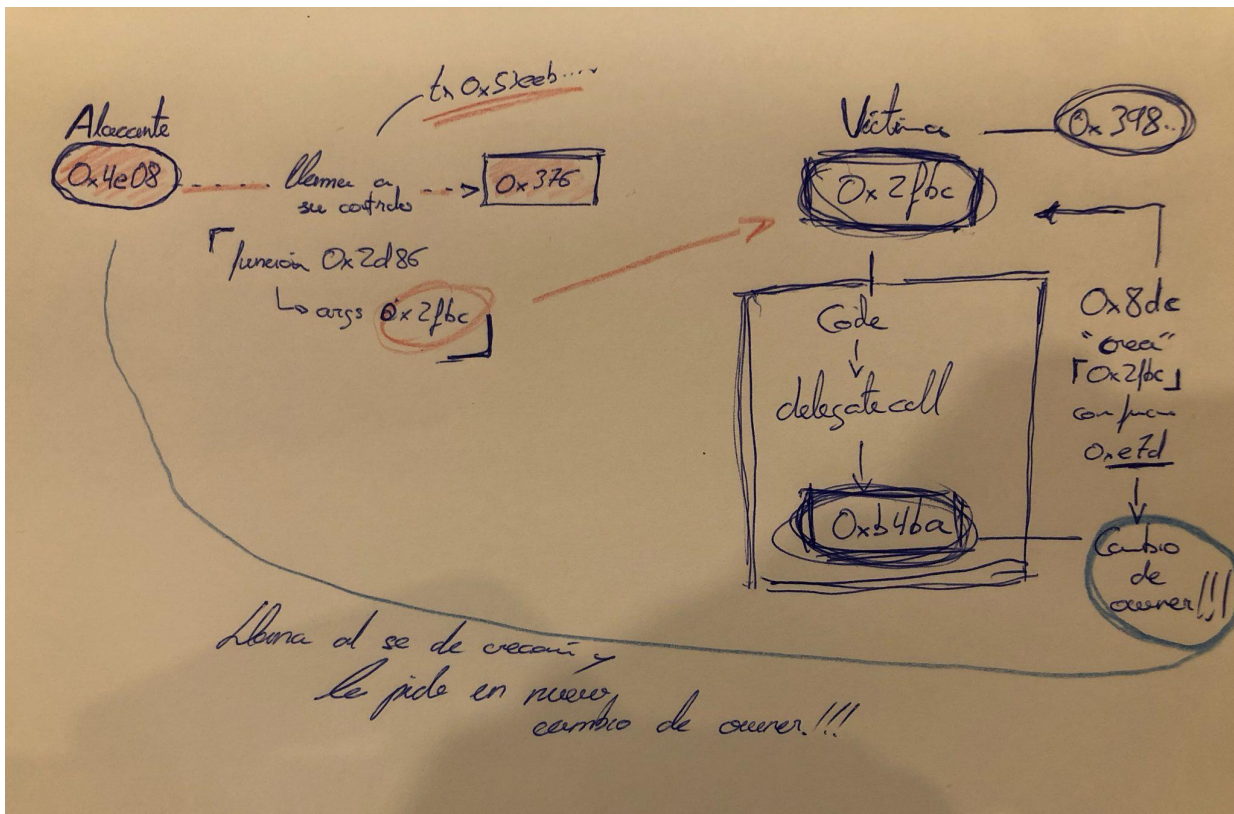 tx 0x53eeb....
Atacante
0x4e08
llama a
su contrato
0x376
función 0x2d86
↳ args 0x2fbc
Víctima
0x398..
0x2fbc
Code
delegatecall
0xb4ba
0x8dc
"crea"
「0x2fbc」
con func
0xe7d
Cambio
de
owner!!!
Llama al se de creación y
le pide un nuevo
cambio de owner!!!